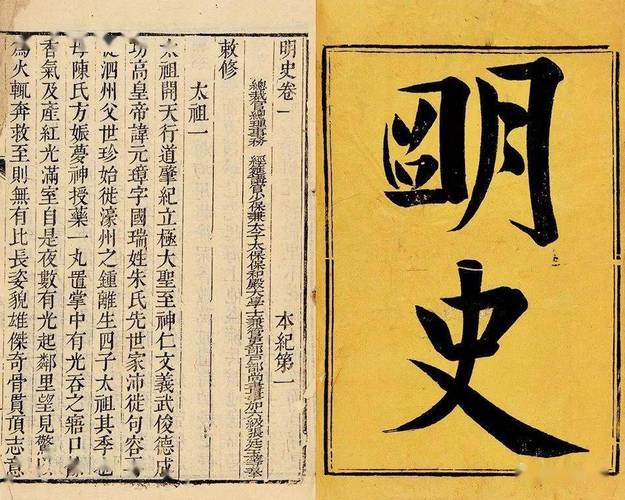 朙史
明史卷一 本紀第一
總裁官總理事務 經筵講官少保兼太子太保保和殿大學士兼管吏部戶部尚書事加六級張廷玉等奉
敕修
太祖一
太祖開天行道肇紀立極大聖至神仁文義武俊德成
功高皇帝諱元璋字國瑞姓朱氏先世家沛徙句容
徙泗州父世珍始徙濠州之鍾離生四子太祖其季也
母陳氏方娠夢神授藥一丸置掌中有光吞之寤口餘
香氣及產紅光滿室自是夜數有光起鄰里望見驚以
為火輒奔救至則無有比長姿貌雄傑奇骨貫頂志意